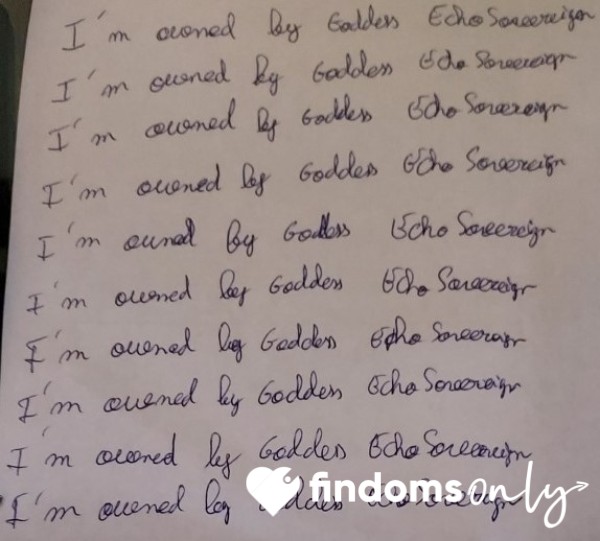 I'm owned by Goddess Echo Sovereign
I'm owned by Goddess Echo Sovereign
I'm owned by Goddess Echo Sovereign
I'm owned by Goddess Echo Sovereign
I'm owned by Goddess Echo Sovereign
I'm owned by Goddess Echo Sovereign
I'm owned by Goddess Echo Sovereign
I'm owned by Goddess Echo Sovereign
I'm owned by Goddess Echo Sovereign
I'm owned by Goddess Echo Sovereign
findomsonly